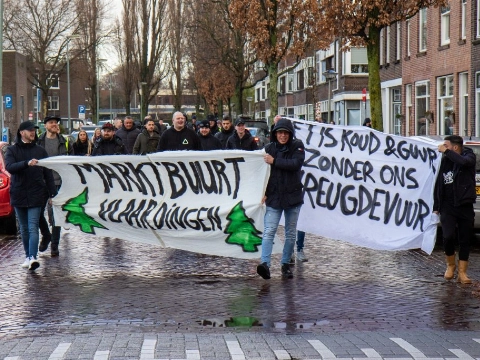 MARKTBUURT
VLAARDINGEN
ET IS KOUD & GUUR
ZONDER ONS
REUGDEVUUR
P